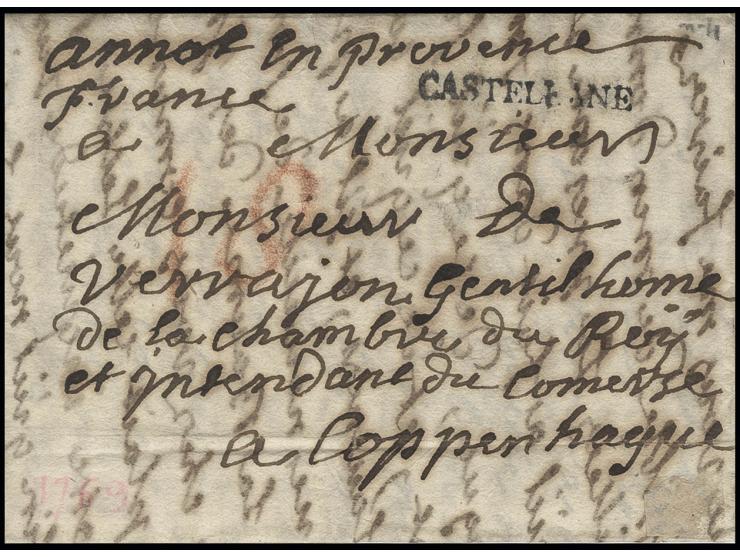 annot En provence
France
CASTELLANE
a Monsieur
Monsieur De
Vervajon Gentilhome
de la chambre du Roÿ
et jntendant du Comerse
a Coppenhague
18
1769